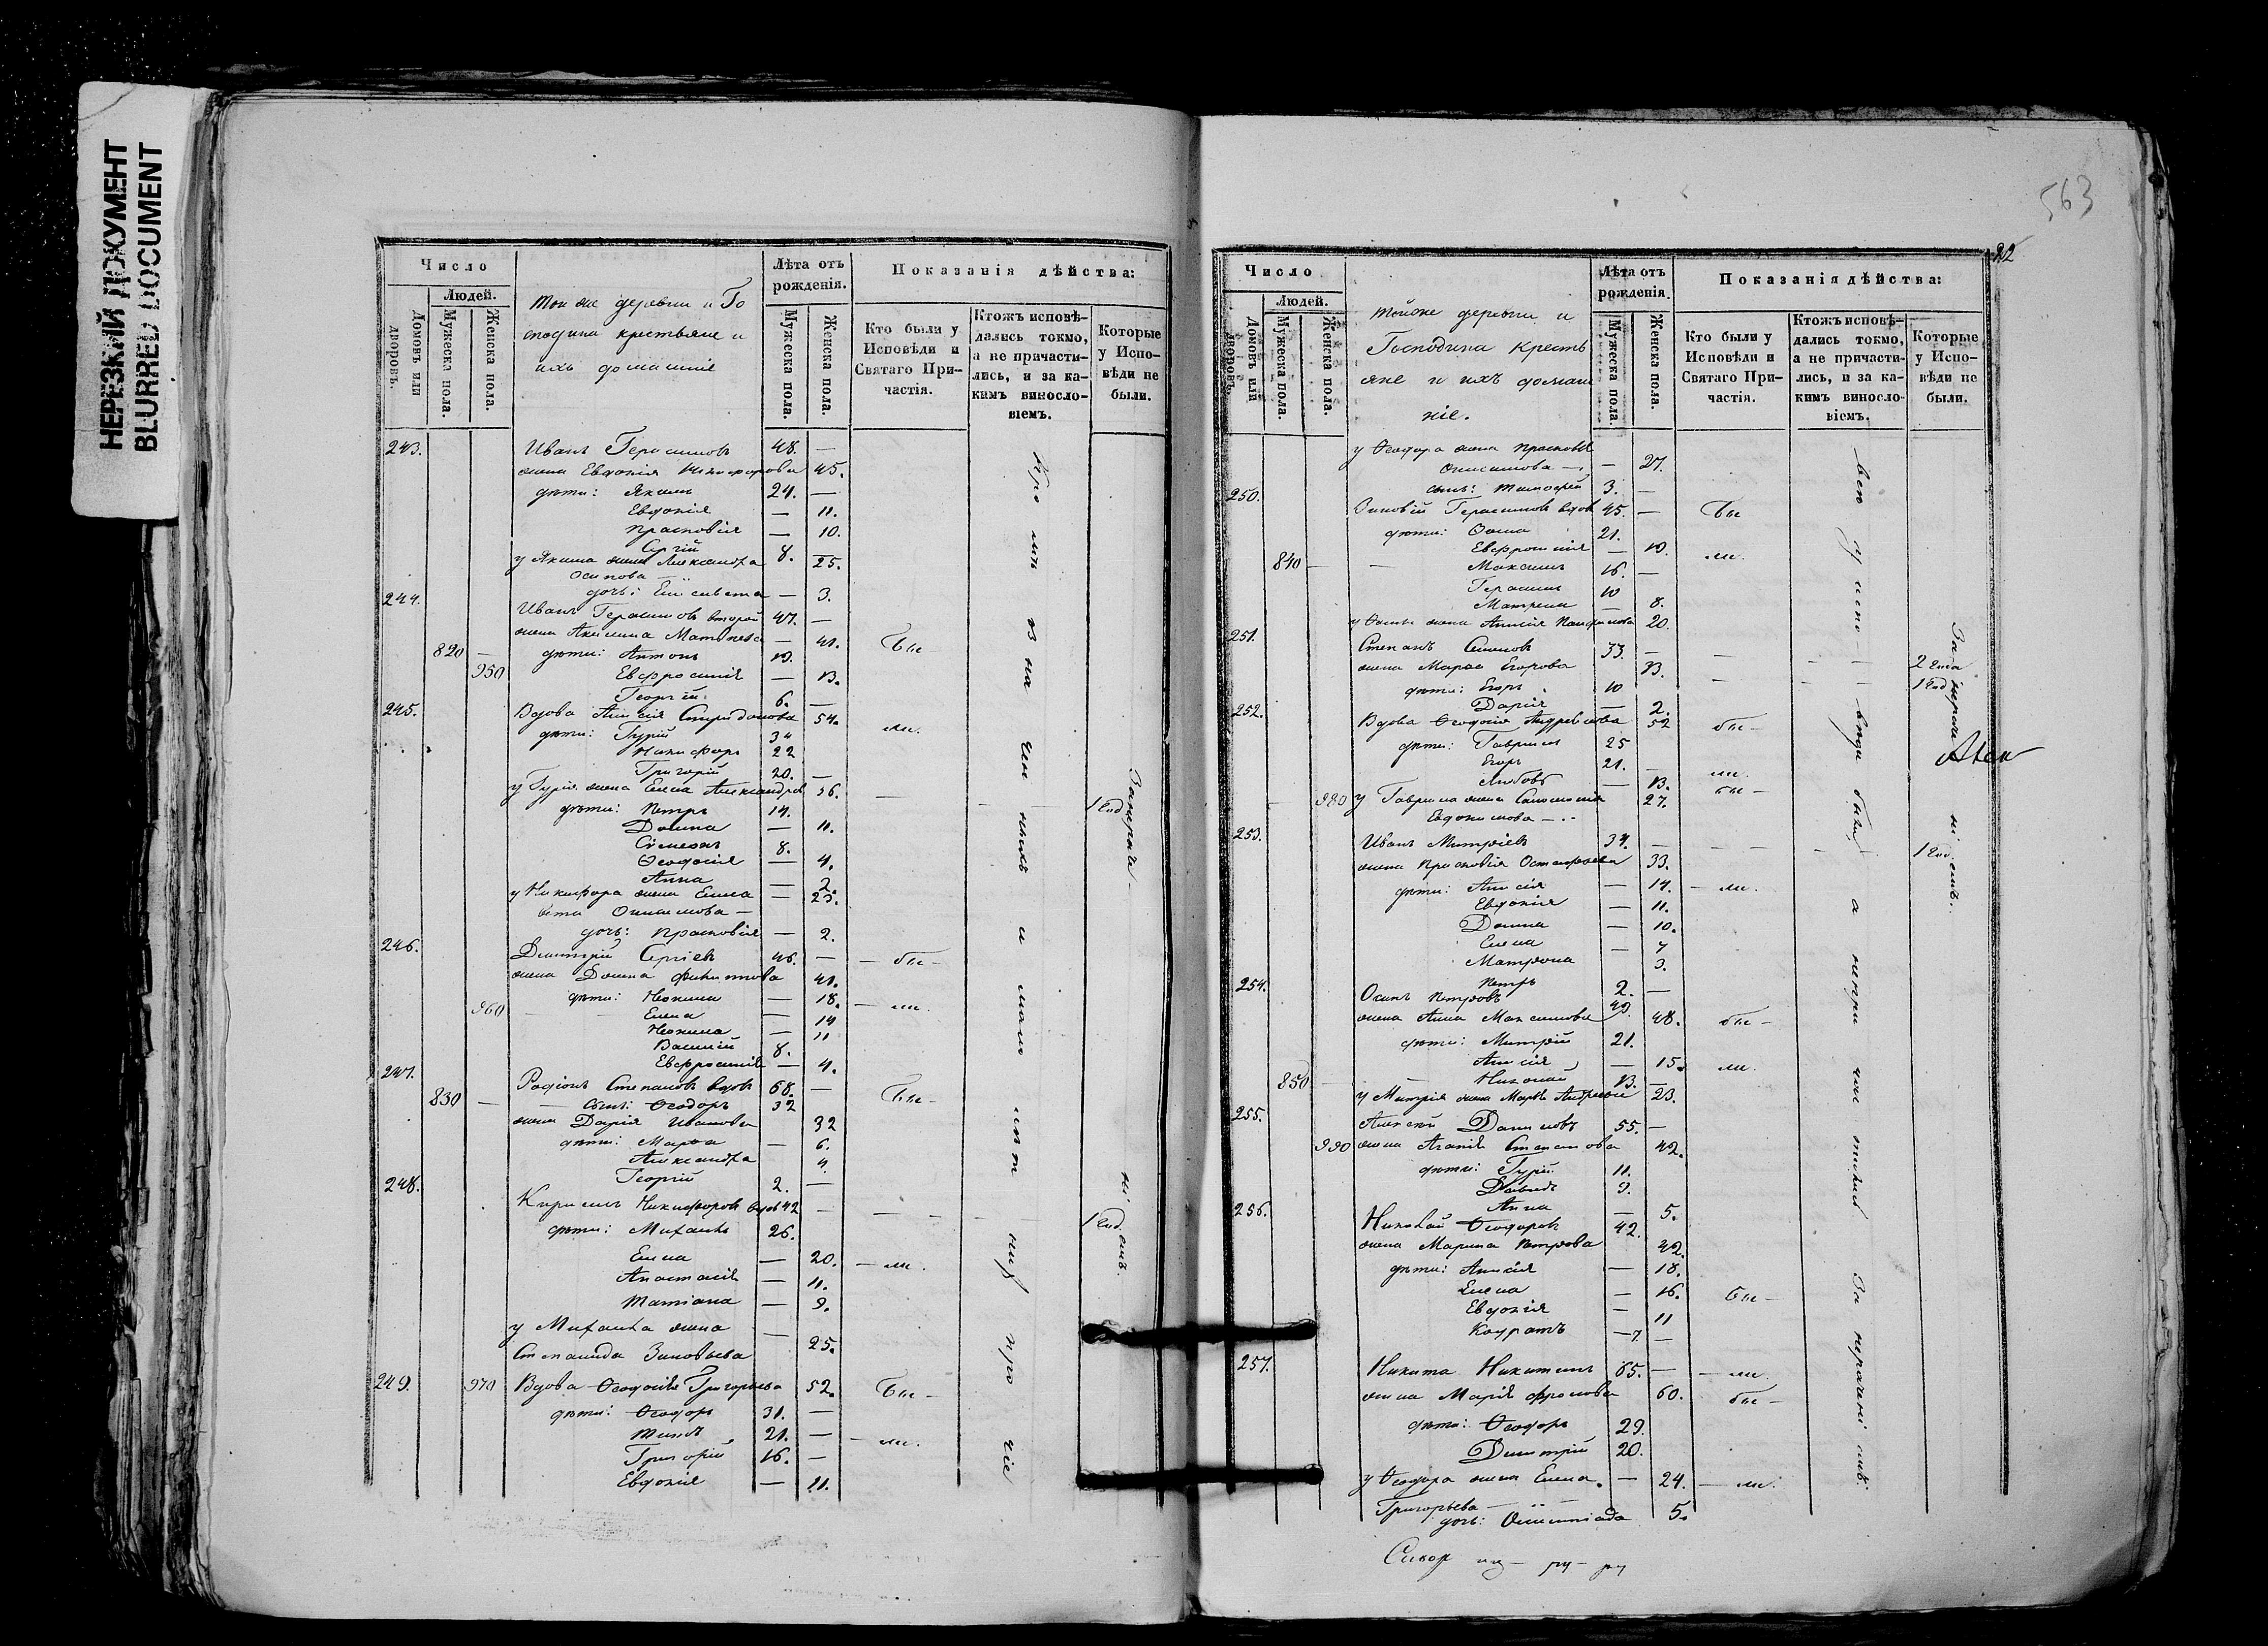 НЕРЕЗКИЙ ДОКУМЕНТ
BLURRED DOCUMENT
Число
Людей.
Домовъ или дворовъ.
Мужеска пола.
Женска пола.
Той же деревни и Го
сподина крестьяне и
ихъ домашніе
Лѣта отъ рожденія.
Мужеска пола.
Женска пола.
Показанія дѣйства:
Кто были у Исповѣди и Святаго Причастія.
Ктожъ исповѣдались токмо, а не причастились, и за какимъ винословіемъ.
Которые у Исповѣди не были.
243. Иванъ Герасимовъ 48. —
жена Евдокія Никифорова 45.
дѣти: Якимъ 24. —
Евдокія — 11.
Прасковія — 10.
Сергій 8. —
у Якима жена Александра 25.
Осипова —
дочь: Елисавета — 3.
244. Иванъ Герасимовъ второй 47. —
жена Акилина Матвѣева — 41. Бы
820 — дѣти: Антонъ 19.
950 Евфросинія — 13.
Георгій 6. —
245. Вдова Анисія Спиридонова 54. ли.
дѣти: Гурій 34
Никифоръ 22
Григорій 20. —
у Гурія жена Елена Александров 36. —
дѣти: Петръ 14. 1 год
Домна — 11.
Сѵмеонъ 8.
Ѳеодосія — 4.
Анна — 2.
у Никифора жена Елиса — 25.
вета Онисимова —
дочь: Прасковія — 2.
246. Димитрій Сергіевъ 46. — — бы —
жена Домна Филиппова 41.
дѣти: Неонила — 18. — ли.
960 — Елена — 14
Неонила — 11
Василій 8.
Евфросинія — 4.
247. Родіонъ Степановъ вдовъ 68. —
830 — сынъ: Ѳеодоръ 32 Бы —
жена Дарія Иванова 32
дѣти: Марѳа — 6.
Александра 4.
Георгій 2. —
248. Кирилъ Никифоровъ вдов 42 — — — 1 год
дѣти: Михаилъ 26.
Елена — 20. — ли.
Анастасія — 11.
Татіана — 9.
у Михаила жена — 25.
Степанида Зиновьева
249. 970 Вдова Ѳеодосія Григорьева 52. Бы —
дѣти: Ѳеодоръ 31. —
21. — — ли.
Григорій 16. —
Евдокія — 11.
563
22
Число
Людей.
Домовъ или дворовъ.
Мужеска пола.
Женска пола.
Тойже деревни и
Господина кресть
яне и ихъ домаш
ніе.
Лѣта отъ рожденія.
Мужеска пола.
Женска пола.
Показанія дѣйства:
Кто были у Исповѣди и Святаго Причастія.
Ктожъ исповѣдались токмо, а не причастились, и за какимъ винословіемъ.
Которые у Исповѣди не были.
у Ѳеодора жена Прасковія
Онисимова — — 27.
сынъ: Тимофей 3. —
250. Зиновій Герасимовъ вдов 45. — Бы
дѣти: Ѳома 21.
Евфросинія — 19. ли.
840 — Максимъ 16. —
Герасимъ 10
Матрена — 8.
у Ѳомы жена Анисія Панфилова 20.
251. Степанъ Семеновъ 33. — — 2 года
жена Марѳа Егорова — 1 год
дѣти: Егоръ 10
Дарія — 2.
252. Вдова Ѳеодосія Андреянова 52 бы —
дѣти: Гавріилъ 25
Егоръ 21. — ли.
Любовь — 13. бы —
980 у Гавріила жена Соломонія 27.
Евдокимова —
253. Иванъ Митріевъ 34. — — 1 год.
жена Прасковія Остафьева 33.
дѣти: Анисія — 14. — ли.
Евдокія — 11.
Домна — 10.
Елена — 7
Матрона 3.
Петръ 2. —
254. Осипъ Петровъ 49.
жена Анна Максимова 48. бы —
дѣти: Митрій 21.
Анисія — 15. ли.
850 — Николай 13. —
у Митрія жена Марья Андреева 23.
255. Алексѣй Даниловъ 55. —
990 жена Агапія Степанова 42.
дѣти: Гурій 11.
Давидъ 9.
Анна — 5.
256. Николай Ѳеодоровъ 42.
жена Марина Петрова 42.
дѣти: Анисія — 18.
Елена — 16. бы —
Евдокія — 11
Кодратъ — 7. —
257. Никита Никитинъ 65. — — ли.
жена Марія Фролова 60. бы —
дѣти: Ѳеодоръ 29.
Димитрій 20.
у Ѳеодора жена Елена — 24. — ли.
Григорьева —
дочь: Олимпіада 5.